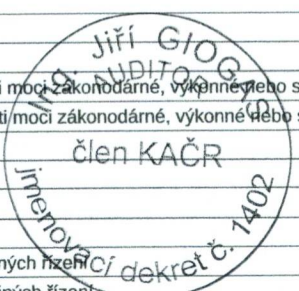 Ing. Jiří GIOGAS
AUDITOR
i moci zákonodárné, výkonné nebo s
ti moci zákonodárné, výkonné nebo s
člen KAČR
jmenovací dekret č. 1402
ných řízení
ných řízení